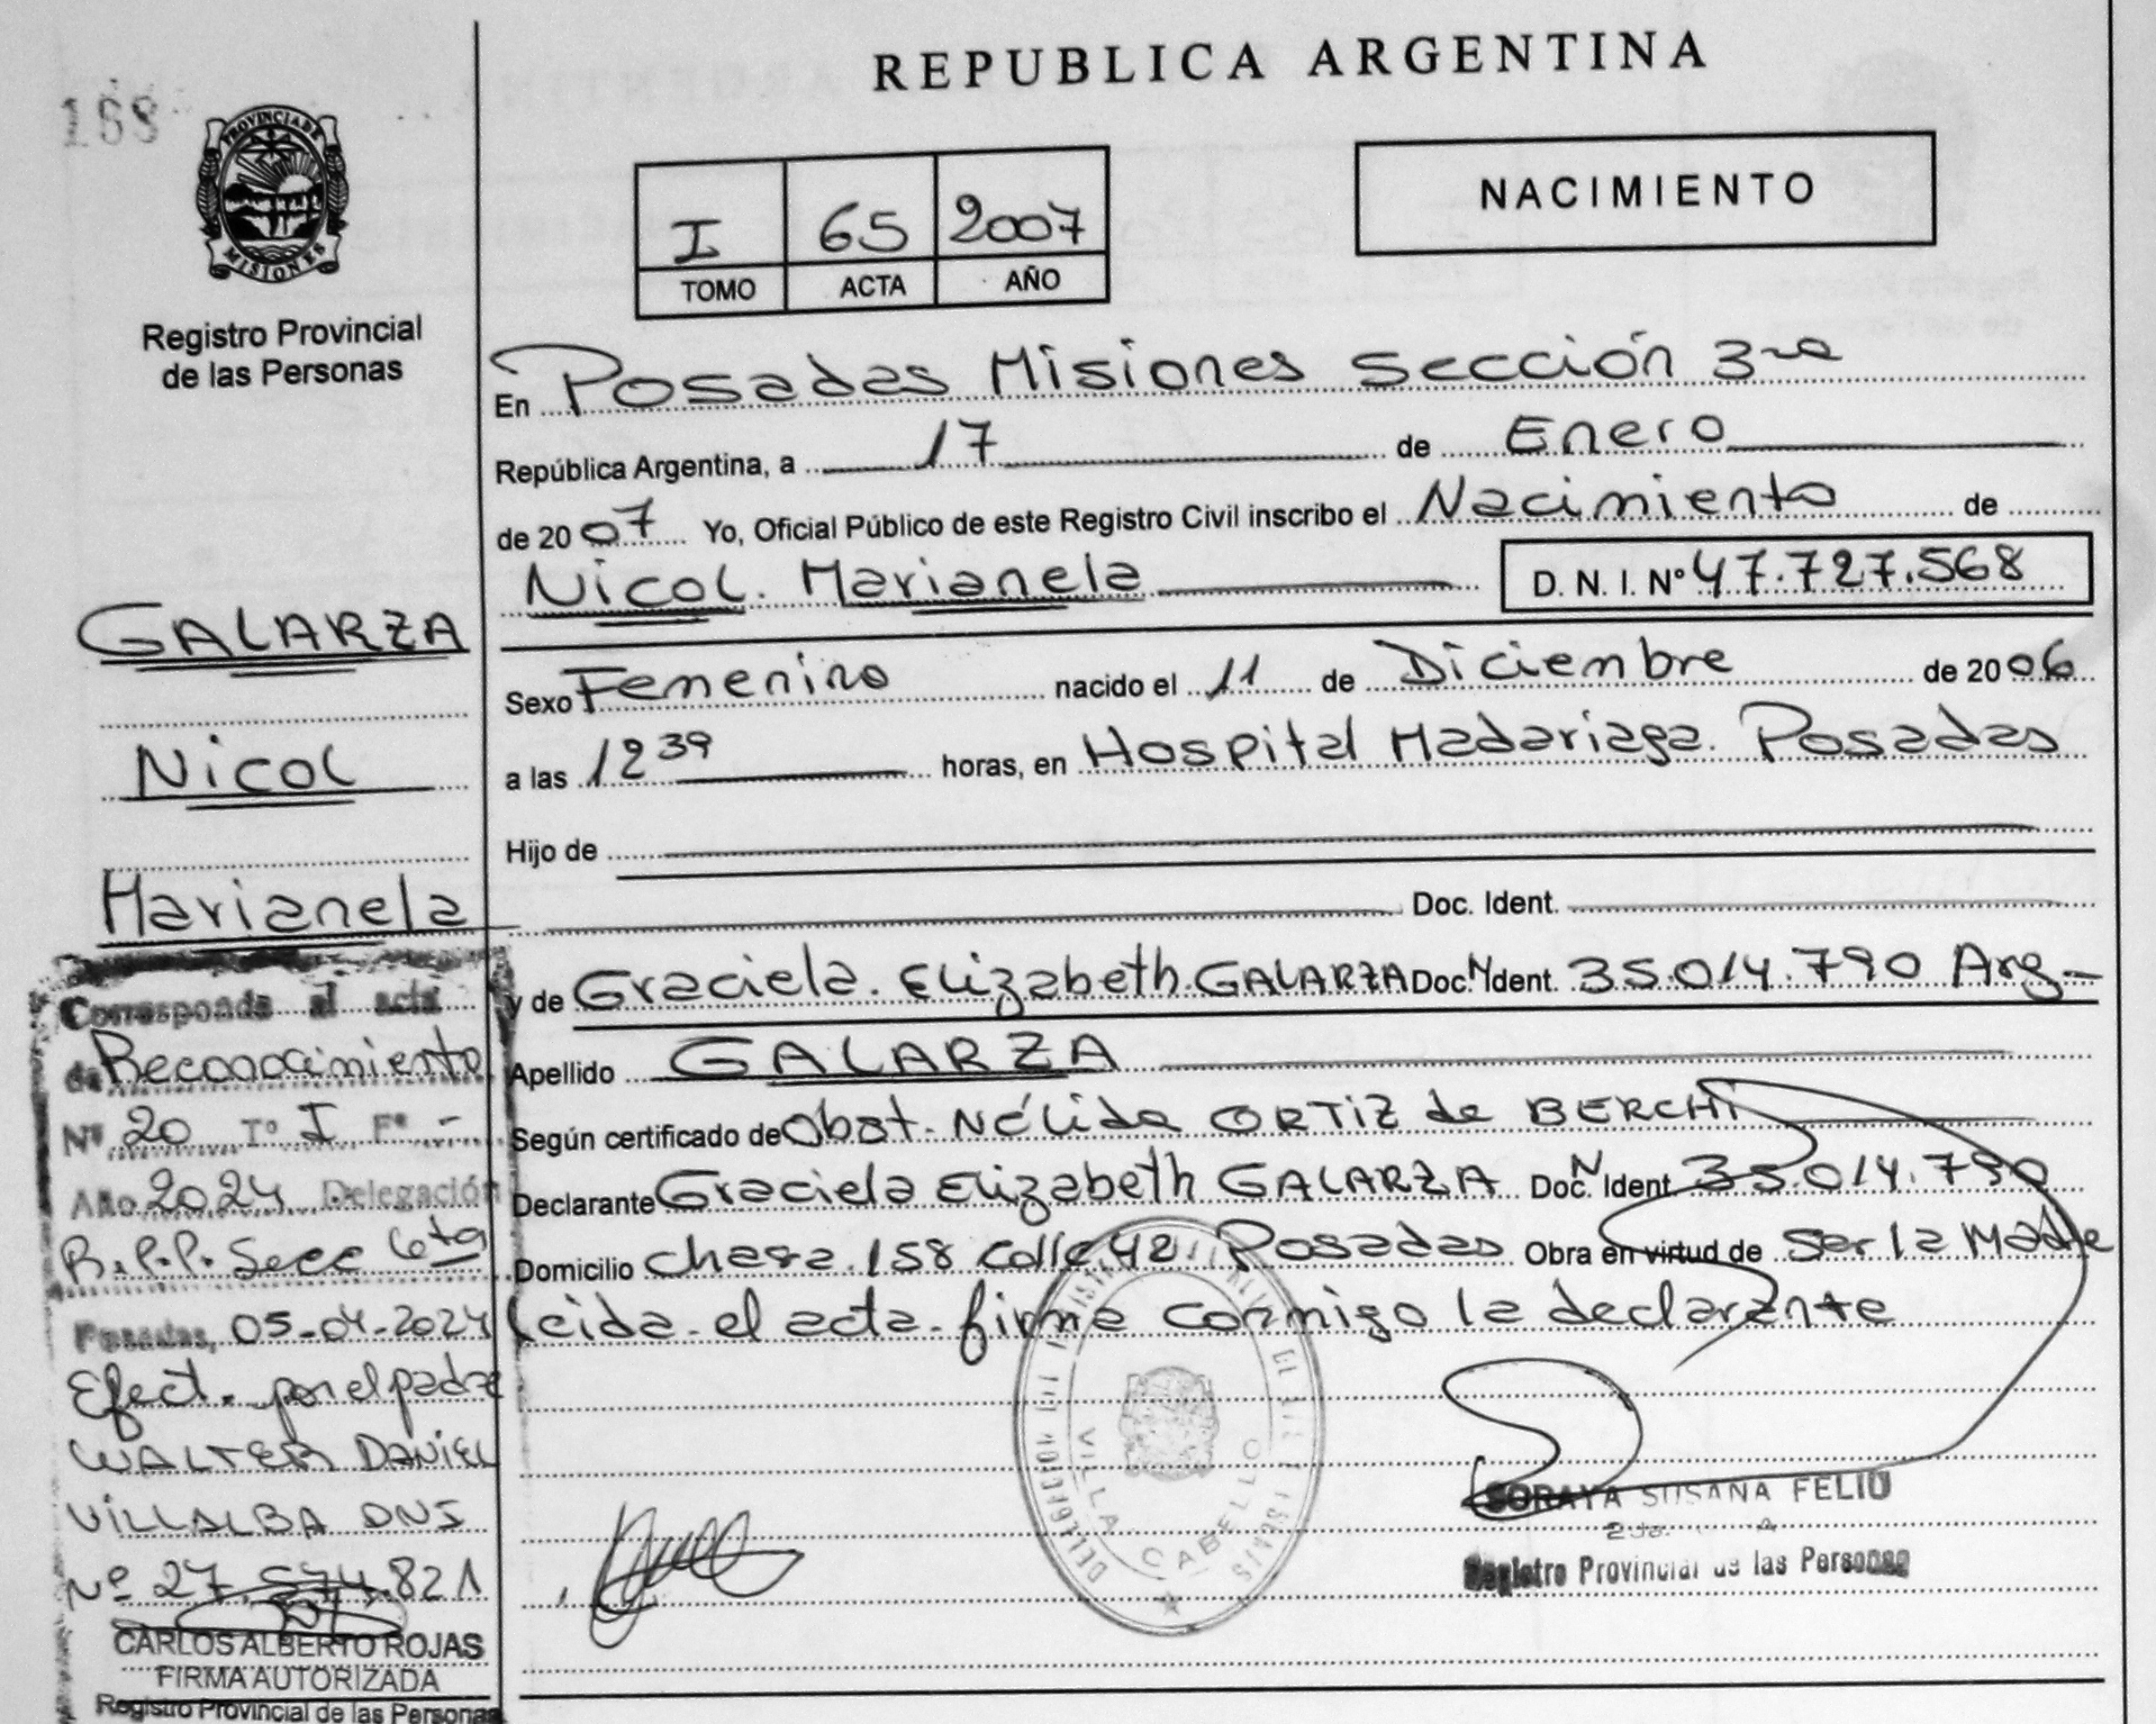 REPUBLICA ARGENTINA
168
PROVINCIA DE
MISIONES
Registro Provincial
de las Personas
I 65 2007
TOMO ACTA AÑO
NACIMIENTO
En Posadas Misiones Sección 3ra
República Argentina, a 17 de Enero
de 2007 Yo, Oficial Público de este Registro Civil inscribo el Nacimiento de
Nicol. Marianela D. N. I. Nº 47.727.568
Sexo Femenino nacido el 11 de Diciembre de 2006
a las 12 39 horas, en Hospital Madariaga. Posadas
Hijo de
Doc. Ident.
y de Graciela. Elizabeth. GALARZA Doc. N Ident. 35.014.790 Arg-
Apellido GALARZA
Según certificado de Obst. Nélida ORTIZ de BERCHI
Declarante Graciela Elizabeth GALARZA Doc. N Ident 35.014.790
Domicilio chara 158 calle 42. Posadas Obra en virtud de ser la Madre
Leida el acta firma conmigo la declarante
GALARZA
Nicol
Marianela
Corresponde al acta
de Reconocimiento
Nº 20 Tº I Fº -
Año 2024 Delegación
R.P.P. Secc 6ta
Posadas, 05-04-2024
Efect. por el padre
WALTER DANIEL
VILLALBA DNI
Nº 27.574.821
CARLOS ALBERTO ROJAS
FIRMA AUTORIZADA
Registro Provincial de las Personas
VILLA CABELLO
SORAYA SUSANA FELIU
Registro Provincial de las Personas